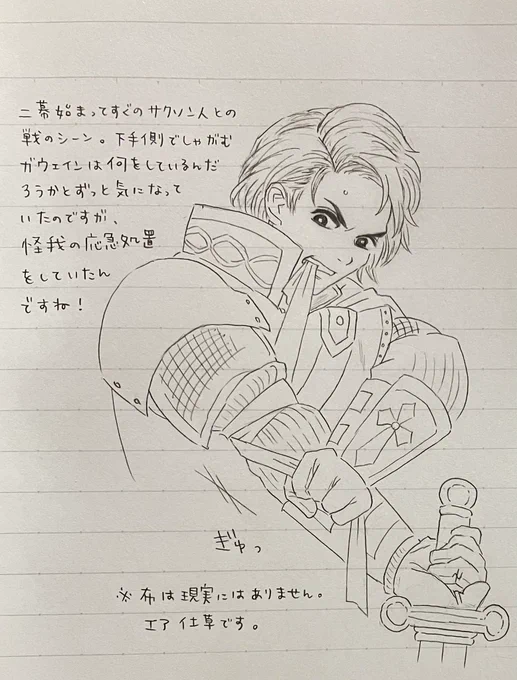 二幕始まってすぐのサクソン人との
戦のシーン。下手側でしゃがむ
ガウェインは何をしているんだ
ろうかとずっと気になって
いたのですが、
怪我の応急処置
をしていたん
ですね!
ぎゅっ
※布は現実にはありません。
エア仕草です。